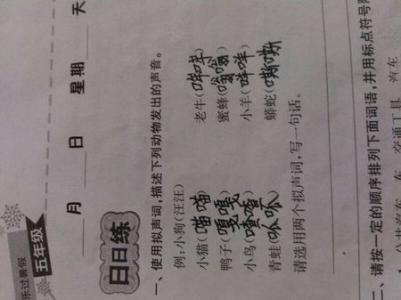 乐过暑假
五年级
月 日 星期 天
日日练
一、使用拟声词,描述下列动物发出的声音。
例:小狗(汪汪)
小猫(喵喵) 老牛(哞哞)
鸭子(嘎嘎) 蜜蜂(嗡嗡)
小鸟(喳喳) 小羊(咩咩)
青蛙(呱呱) 蟒蛇(嘶嘶)
请选用两个拟声词,写一句话。
二、请按一定的顺序排列下面词语,并用标点符号
车 交通工具 汽车